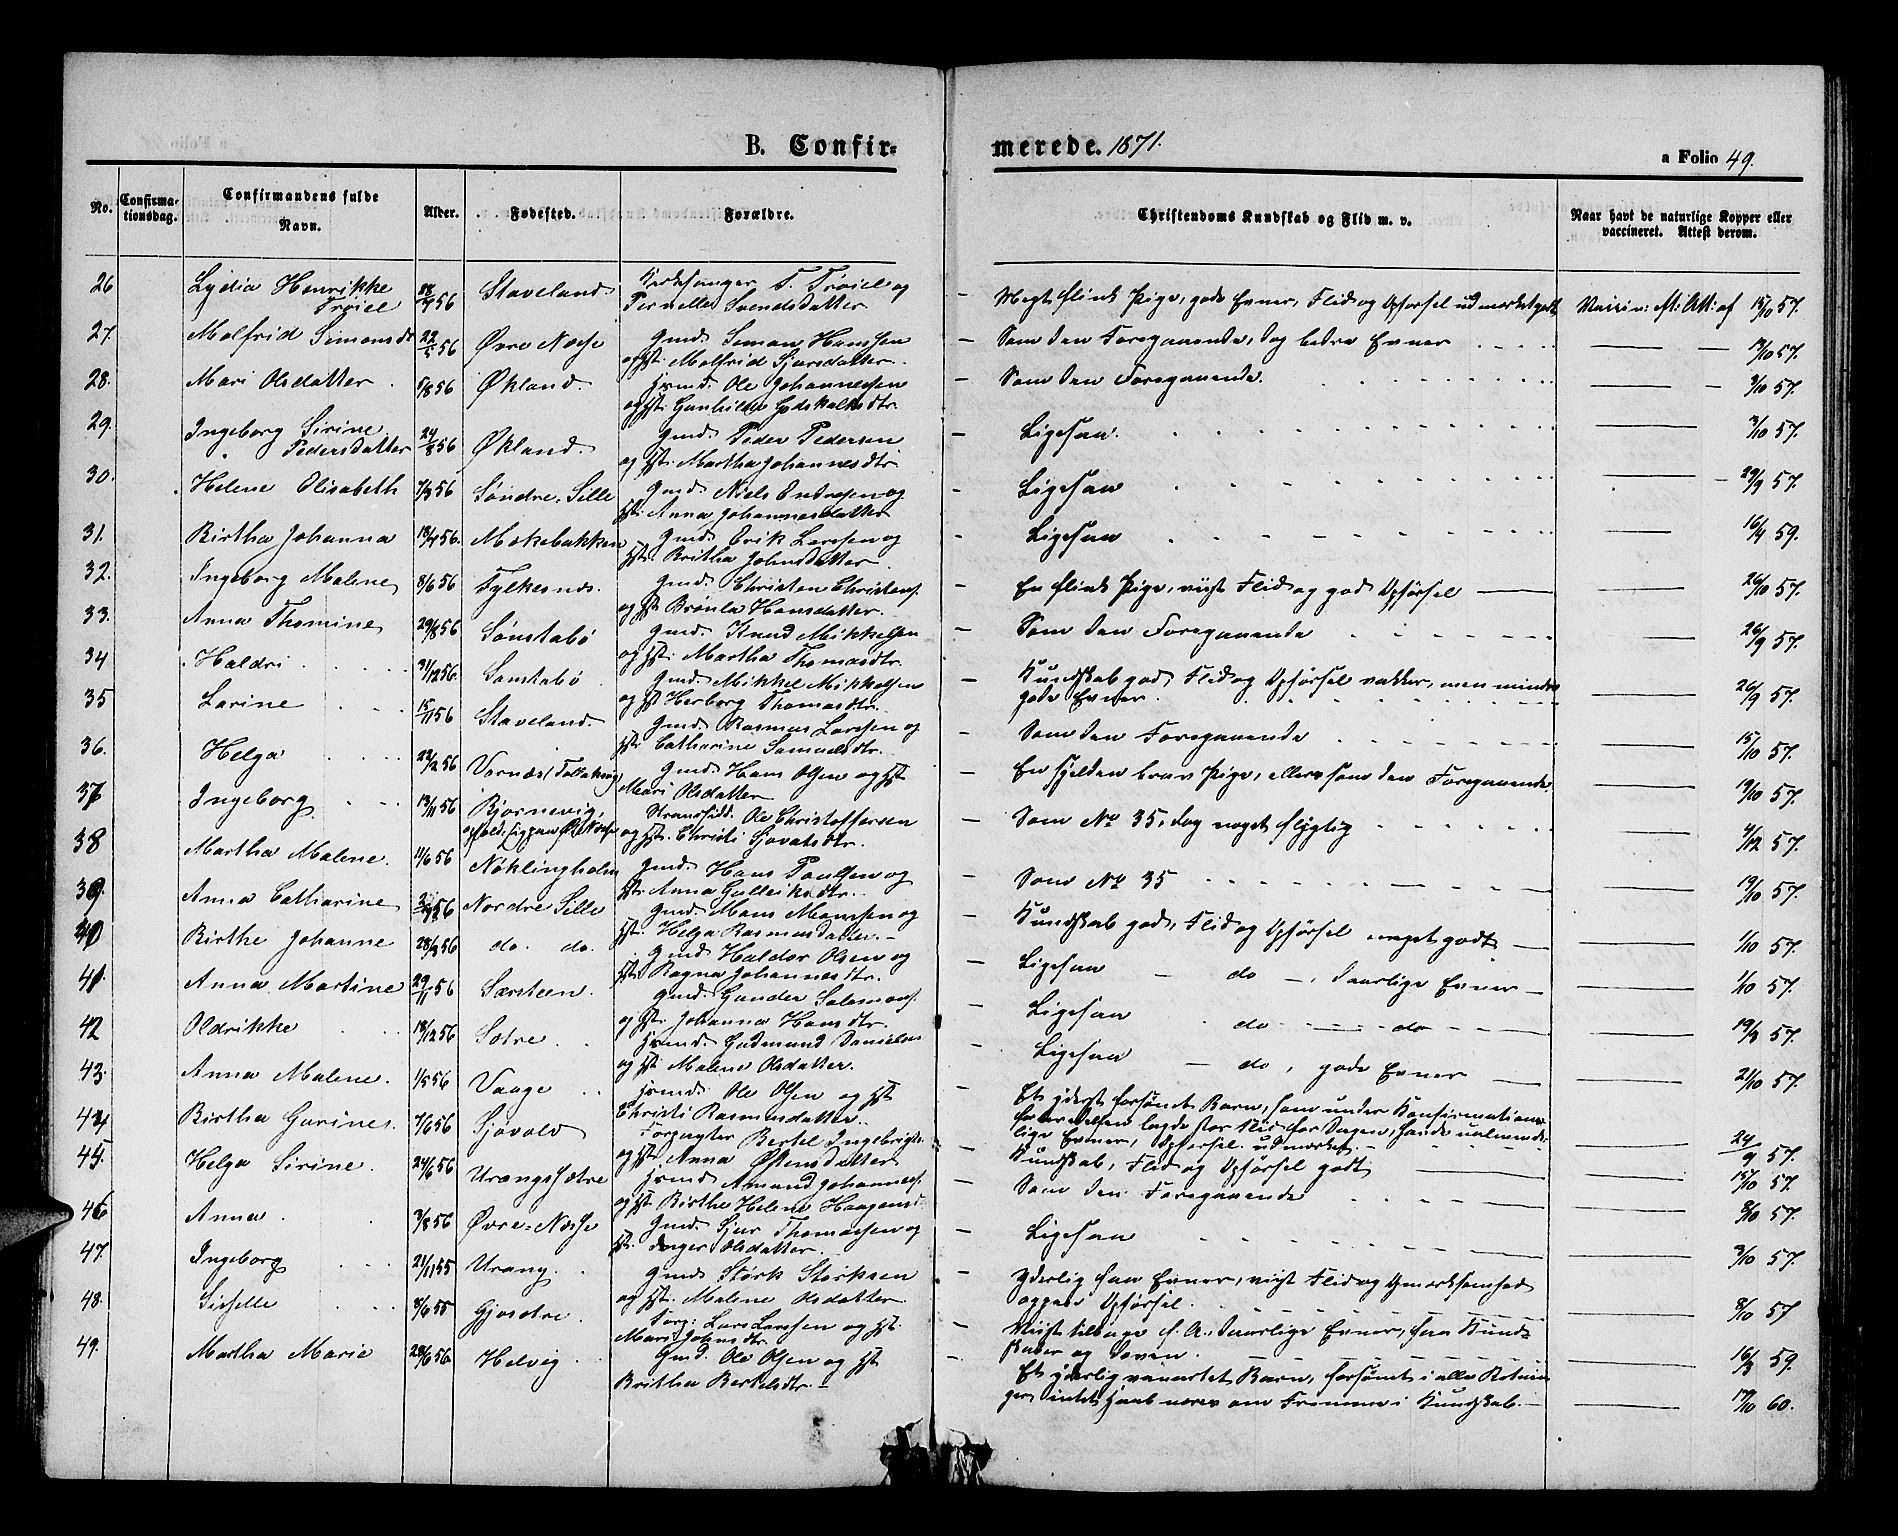 B. Confirmerede. 1871.
a Folio 49.
No. Confirmationsdag. Confirmandens fulde Navn. Alder. Fødested. Forældre. Christendoms Kundskab og Flid m. v. Naar havt de naturlige Kopper eller vaccineret. Attest derom.
26 Lydia Henrikke Trøiel 56 Staveland Kirkesanger T. Trøiel og Pernelle Svendsdatter. – Megt flink Pige, gode Evner, Flid og Opførsel udmærket godt Vaccin: eft: Att: af 15/10 57.
27. Malfrid Simonsdt 22/5 56 Øvre Næsse Gmd. Simon Hanssen og Hst. Malfrid Sjursdatter. – Som den Foregaaende, dog bedre Evner 13/10 57.
28. Mari Olsdatter 5/8 56 Økland. Hsmd. Ole Johannessen og Hst. Gunhilde Godskalksdtr. – Som den Foregaaende. 3/10 57.
29. Ingeborg Sirine Pedersdatter 24/8 56 Økland. Gmd. Peder Pedersen og Hst. Martha Johannesdtr. – Ligesaa. 3/10 57.
30. Helene Olisabeth 7/3 56 Søndre Lille Gmd. Niels Endresen og Hst. Anna Johannesdatter – Ligesaa 29/9 57.
31. Birtha Johanna 13/4 56. Mækebakken Gmd. Erik Larsen og Hst. Britha Johnsdatter. – Ligesaa 16/4 59.
32. Ingeborg Malene 8/6 56 Fylkesnes. Gmd. Christen Christens. og Hst. Brønla Hansdatter. – En flink Pige, viist Flid og god Opførsel 26/10 57.
33. Anna Thomine 29/8 56 Sønstabø Gmd. Knud Mikkelsen og Hst. Martha Thomasdtr. – Som den Foregaaende 26/9 57.
34 Haldri 31/12 56. Sønstabø Gmd. Mikkel Mikkelsen og Hst Herborg Thomasdtr. – Kundskab god, Flid og Opførsel vakker, men mindre gode Evner. 26/9 57.
35 Larine 15/11 56 Staveland. Gmd. Rasmus Larsen og Hst. Catharine Samuelsdtr. – Som den Foregaaende 15/10 57.
36. Helga 22/2 56 Vernæs Gmd. Hans Olsen og Hst Mari Olsdatter – En sjelden brav Pige, ellers som den Foregaaende. 19/10 57.
37 Ingeborg 13/11 56 Bjornevig, Strandsidd. Ole Christoffersen og Hst. Christi Sjovatsdtr. – Som No 35, dog noget flygtig 4/12 57.
38 Martha Malene. 11/6 56 Nøklingholm Gmd. Hans Paulsen og Hst. Anna Gulleiksdtr. – Som No 35 19/10 57.
39. Anna Catharine 56 Nordre Lille Gmd. Mons Monsen og Hst. Helga Rasmusdatter. – Kundskab god, Flid og Opførsel meget godt 1/10 57.
40 Birthe Johanne 28/3 56 do. do. Gmd Haldor Olsen og Hst. Ragna Johannesdtr. – Ligesaa – do –, daarlige Evner 1/10 57.
41 Anna Martine 29/11 56 Særsteen. Gmd. Gunder Salomons. og Hst. Johanna Hansdtr. – Ligesaa do do 19/3 57.
42 Oldrikke 13/12 56 Sætre Hsmd. Gudmund Danielsen og Hst Malene Olsdatter. – Ligesaa – do, gode Evner 21/10 57.
43. Anna Malene. 1/5 56 Vaage Hsmd. Ole Olsen og Hst Christi Rasmusdatter. – Et yderst forsømt Barn, som under Konfirmationsforberedelsen lagde stor Flid for Dagen, havde ualmindelige Evner, Opførsel udmærket. 24/9 57.
44 Birtha Gurine. 7/6 56 Sjovold Forpagter Bertel Ingebrigts. og Hst. Anna Østensdatter – Kundskab, Flid og Opførsel godt 15/10 57.
45. Helga Sirine. 24/6 56 Urangssætre Hsmd. Amund Johannes. og Hst Birthe Helene Haagensd. – Som den Foregaaende 8/10 57.
46 Anna. 3/8 56 Øvre Næsse Gmd. Sjur Thomassen og Hst. Inger Olsdatter. – Ligesaa 3/10 57.
47. Ingeborg 21/11 55 Urang Gmd Størk Størksen og Hst. Malene Olsdatter – Yderlig faa Evner, viist Flid og Opmærksomhed og pæn Opførsel. 8/10 57
48. Sisselle 3/6 55 Gjosætre. Forp: Lars Larsen og Hst. Mari Johnsdtr. – Meget tilbage f. A., daarlige Evner, faa Kundskaber og doven. 16/3 59.
49. Martha Marie 28/6 56 Helvig Gmd. Ole Olsen og Hst Britha Bertelsdtr. – Et yderlig vanartet Barn, forsømt i alle Retninger, intet Haab næres om Fremme i Kundskab. 17/10 60.